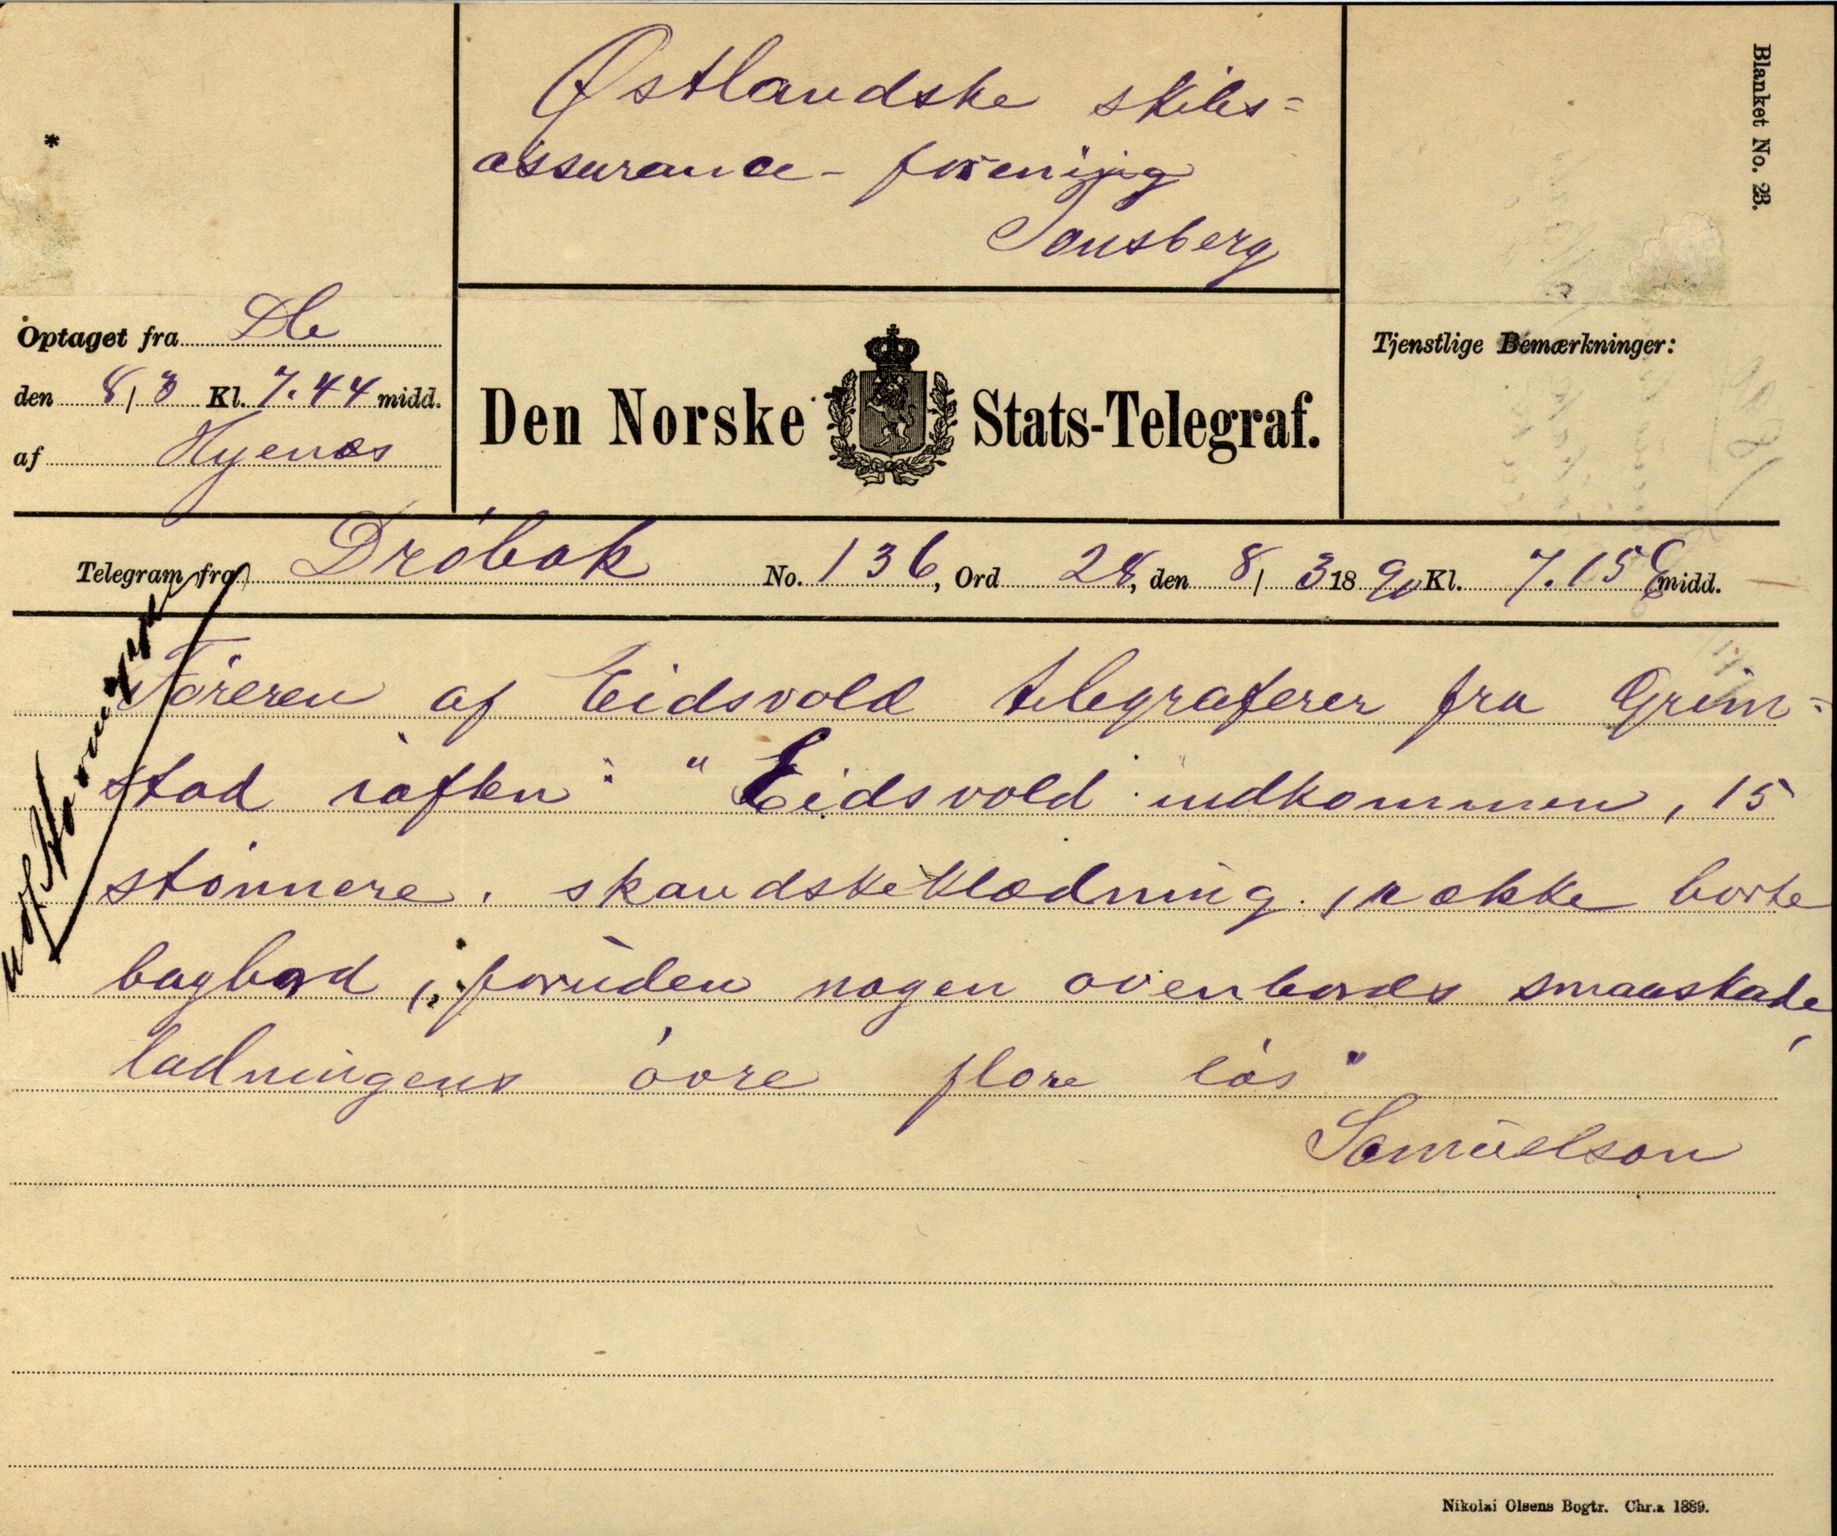 Blanket No. 23.
Østlandske skibs=
assurance - forening
Tønsberg
*
Optaget fra
den 8/3 Kl. 7.44 midd.
af Hyenæs
Den Norske Stats-Telegraf.
Tjenstlige Bemærkninger:
Telegram fra Dröbak No. 136, Ord 28, den 8/3 1890 Kl. 7.15 E midd.
Föreren af Eidsvold telegraferer fra Grim=
stad iaften: "Eidsvold indkommen, 15
stönnere, skandskeklædning, række borte
bagbord, foruden nogen ovenbords smaaskade,
ladningens övre flore lös"
Samuelson
Nikolai Olsens Bogtr. Chr.a 1889.